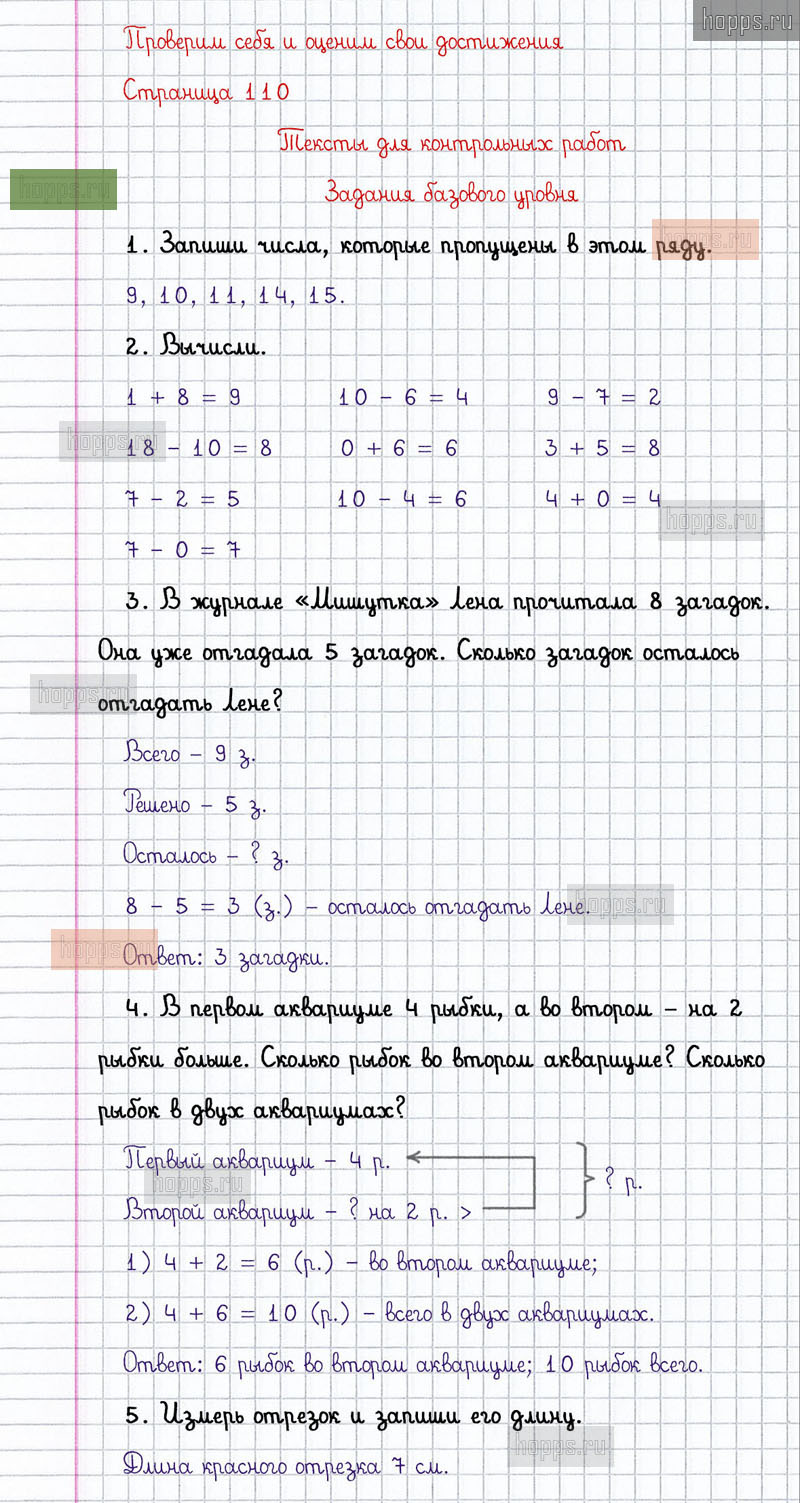 hopps.ru
Проверим себя и оценим свои достижения
Страница 110
Тексты для контрольных работ
hopps.ru
Задания базового уровня
1. Запиши числа, которые пропущены в этом ряду.
hopps.ru
9, 10, 11, 14, 15.
2. Вычисли.
1 + 8 = 9 10 - 6 = 4 9 - 7 = 2
hopps.ru
18 - 10 = 8 0 + 6 = 6 3 + 5 = 8
7 - 2 = 5 10 - 4 = 6 4 + 0 = 4
hopps.ru
7 - 0 = 7
3. В журнале «Мишутка» Лена прочитала 8 загадок.
Она уже отгадала 5 загадок. Сколько загадок осталось
hopps.ru
отгадать Лене?
Всего - 9 з.
Решено - 5 з.
Осталось - ? з.
8 - 5 = 3 (з.) - осталось отгадать Лене.
hopps.ru
hopps.ru
Ответ: 3 загадки.
4. В первом аквариуме 4 рыбки, а во втором - на 2
рыбки больше. Сколько рыбок во втором аквариуме? Сколько
рыбок в двух аквариумах?
Первый аквариум - 4 р.
hopps.ru
? р.
Второй аквариум - ? на 2 р. >
1) 4 + 2 = 6 (р.) - во втором аквариуме;
2) 4 + 6 = 10 (р.) - всего в двух аквариумах.
Ответ: 6 рыбок во втором аквариуме; 10 рыбок всего.
5. Измерь отрезок и запиши его длину.
hopps.ru
Длина красного отрезка 7 см.